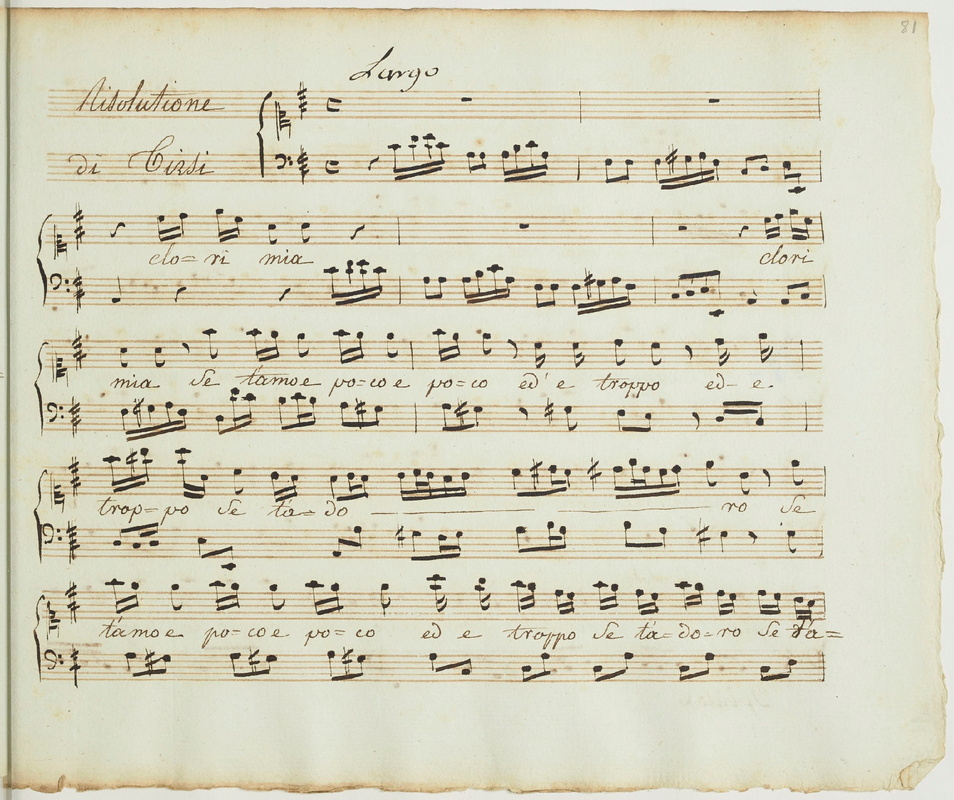 81
Largo
Risolutione
di Tirsi
clo=ri mia clori
mia se t'amo e po=co e po=co ed' e troppo ed- e
trop=po se ta=do ro se
t'amo e po=co e po=co ed e troppo se ta=do=ro se ta=